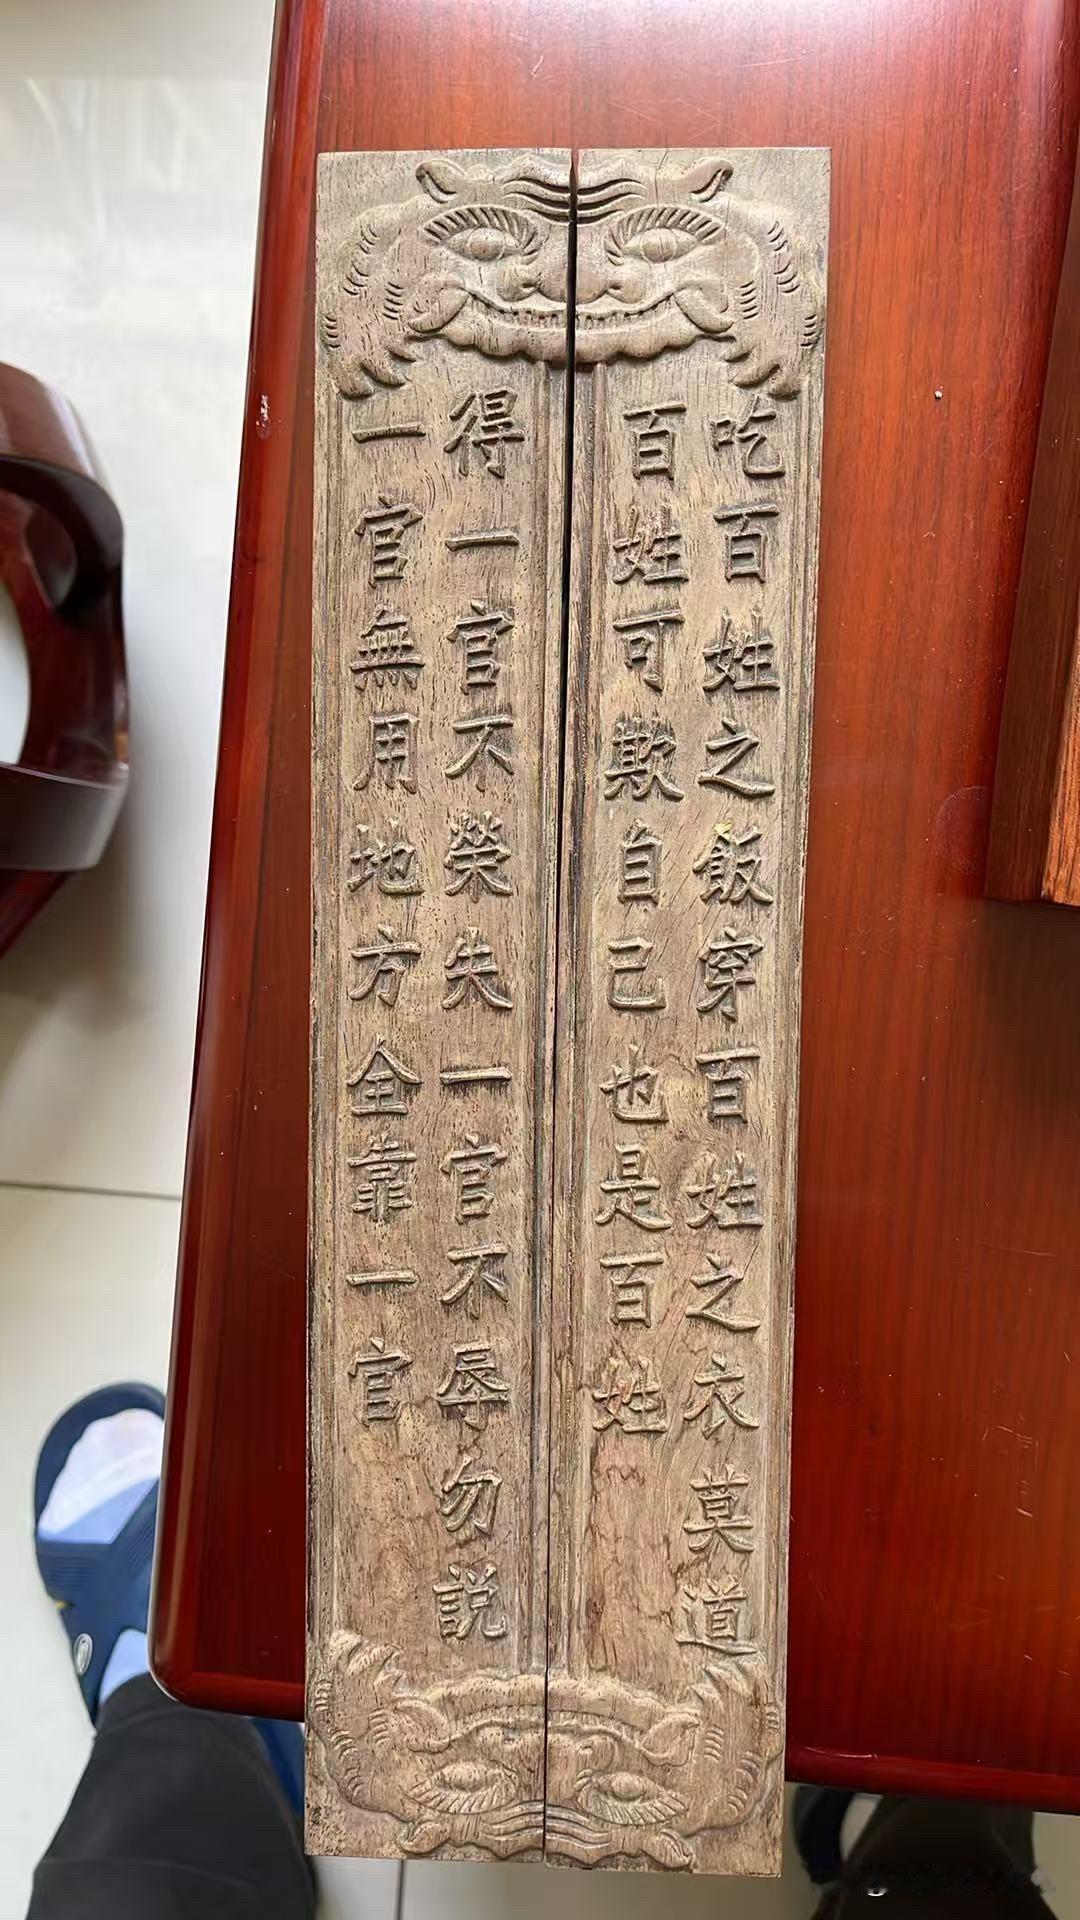 吃百姓之飯穿百姓之衣莫道
百姓可欺自己也是百姓
得一官不榮失一官不辱勿説
一官無用地方全靠一官